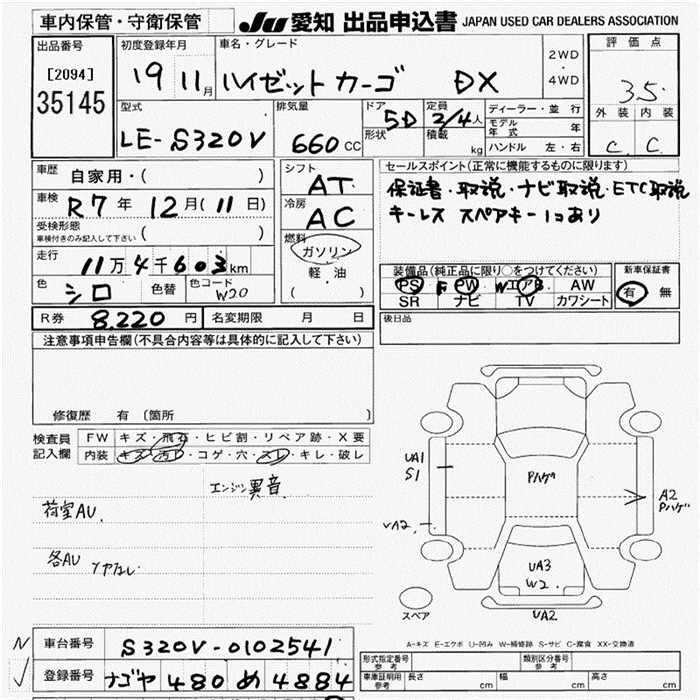 車内保管・守衛保管
JU 愛知 出品申込書 JAPAN USED CAR DEALERS ASSOCIATION
出品番号
[2094]
35145
初度登録年月
19 11月
車名・グレード
ハイゼットカーゴ DX
2WD
・
4WD
評価点
3.5
外装 内装
C C
型式
LE-S320V
排気量
660CC
ドア
5D
形状
定員
2/4人
積載
kg
ディーラー・並行
モデル年式 年
ハンドル 左・右
車歴
自家用・( )
車検
R7年 12月(11日)
受検形態
車検付きのみ記入して下さい ( )
走行
11万4千603km
色
シロ
色替
色コード
W20
シフト
AT
冷房
AC
燃料
ガソリン
軽・油
( )
セールスポイント(正常に機能するものに限ります)
保証書・取説・ナビ取説・ETC取説
キーレス スペアキー1コあり
装備品(純正品に限り○をつけてください)
PS F PW WエアB AW
SR ナビ TV カワシート
新車保証書
有 無
R券 8.220円 名変期限 月 日
後日品
注意事項申告欄(不具合内容等は具体的に記入して下さい)
修復歴 有〔箇所 〕
検査員記入欄
FW キズ・飛石・ヒビ割・リペア跡・X要
内装 キズ・汚レ・コゲ・穴・スレ・キレ・破レ
エンジン異音
荷室AU.
各AU ツヤなし
UA1
S1
UA2
Pハゲ
A2
Pハゲ
UA3
W2
UA2
スペア
A-キズ E-エクボ U-凹み W-補修跡 S-サビ C-腐食 XX-交換済
N 車台番号 S320V-0102541
登録番号 ナゴヤ 480 め 4884
形式指定番号
参考
類別区分番号
参考
車庫証明用
参考
長さ cm 幅 cm 高さ cm